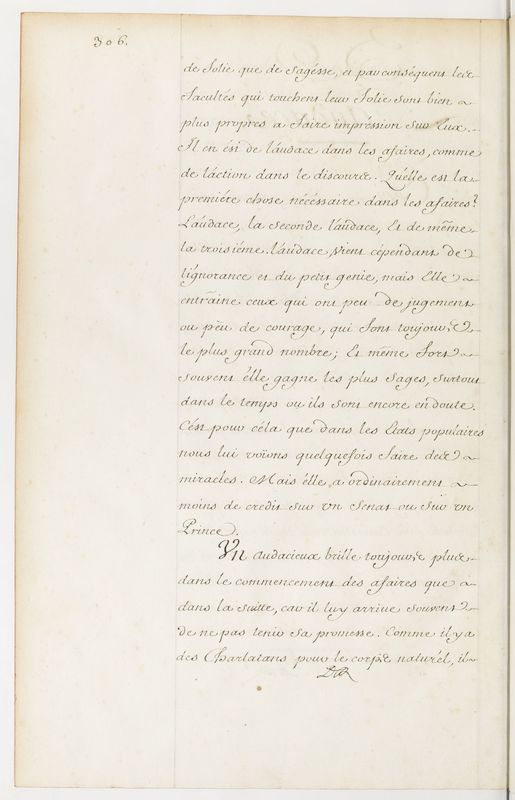 306.
de folie que de sagésse, et par conséquent les
facultés qui touchent leur folie sont bien
plus propres a faire impréssion sur Eux.
Il en ést de láudace dans les afaires, comme
de láction dans le discours. Quélle est la
premiére chose nécéssaire dans les afaires?
Láudace, la seconde láudace, Et de méme
la troisiéme. láudace vient cépendant de
lignorance et du petit genie, mais Elle
entraine ceux qui ont peu de jugement
ou peu de courage, qui sont toujours
le plus grand nombre; Et méme fort
souvent élle gagne les plus sages, surtout
dans le temps ou ils sont encore en doute.
Cést pour céla que dans les Etats populaires
nous lui voions quelquefois faire des
miracles. Mais élle a ordinairement
moins de credit sur vn Senat ou sur vn
Prince.
Vn audacieux brille toujours plus
dans le commencement des afaires que
dans la suitte, car il luy arriue souvent
de ne pas tenir sa promesse. Comme il y a
des Charlatans pour le corps naturél, il